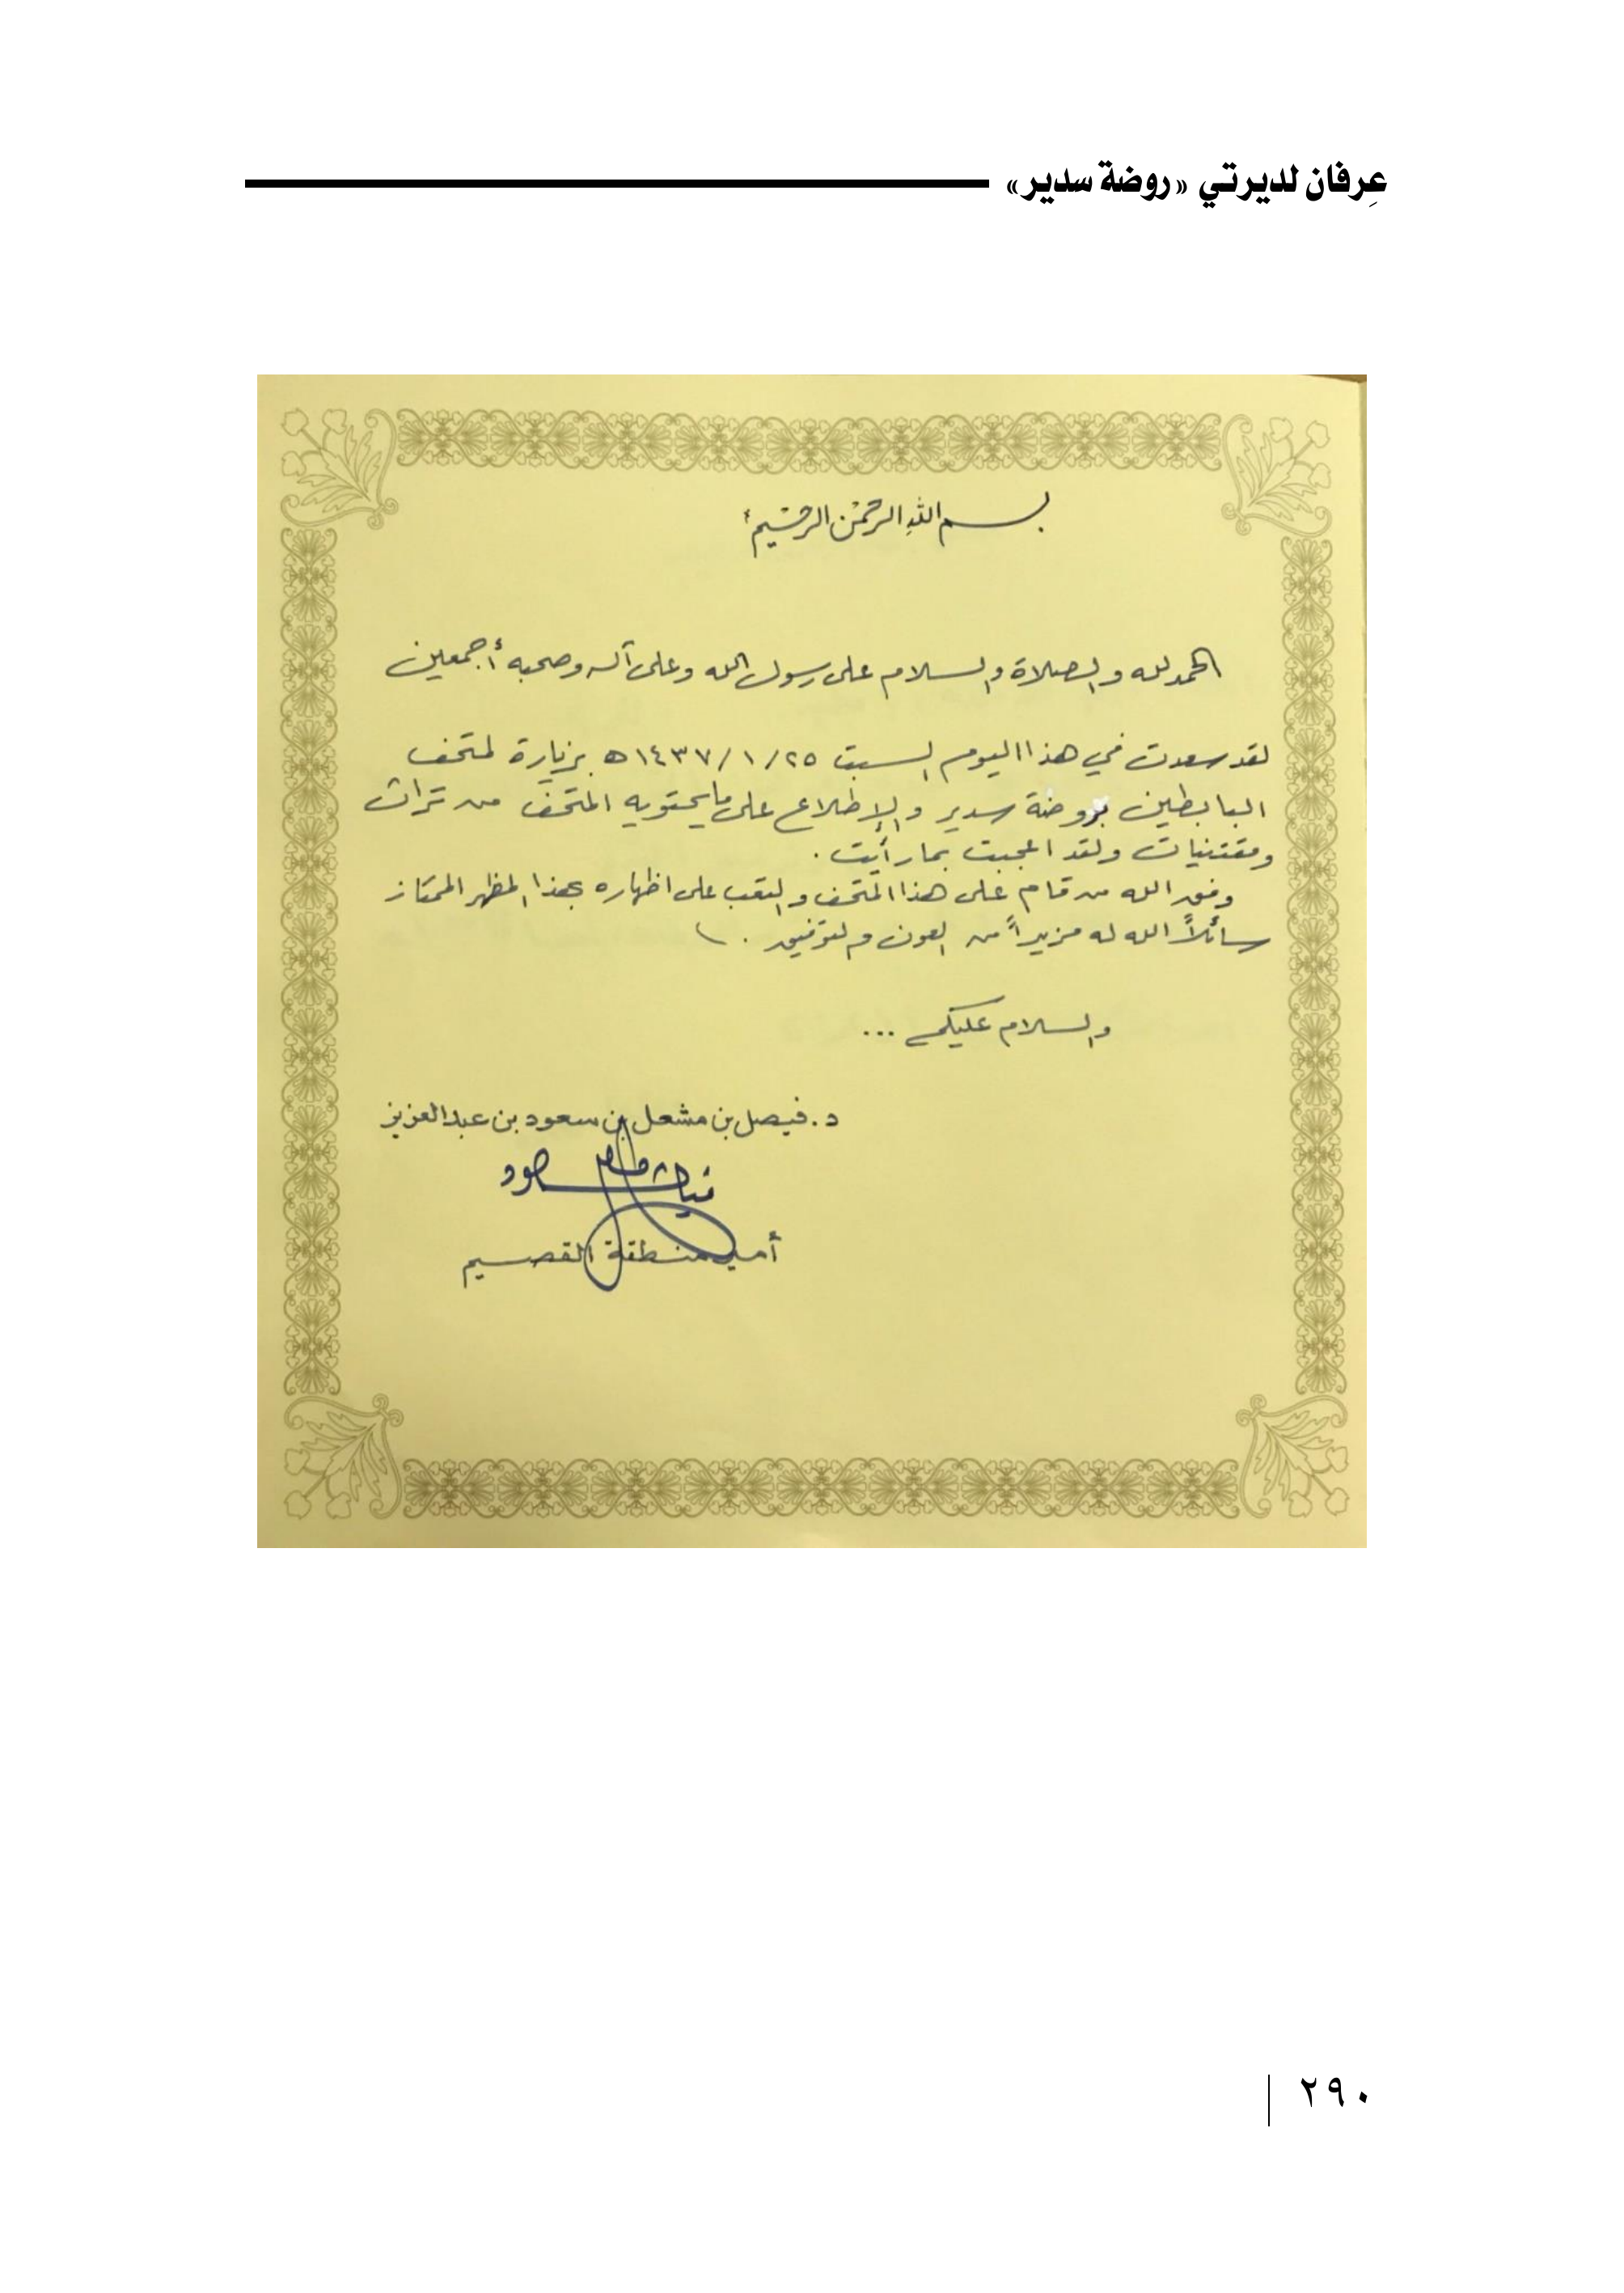 عِرفان لديرتي «روضة سدير»
بسم اللهِ الرحمٰن الرحيم
الحمد لله والصلاة والسلام على رسول الله وعلى آله وصحبه أجمعين
لقد سعدت في هذا اليوم السبت ١٤٣٧/١/٢٥ه بزيارة لمتحف
البابطين بروضة سدير والإطلاع على ما يحتويه المتحف من تراث
ومقتنيات ولقد اعجبت بما رأيت .
وفق الله من قام على هذا المتحف والتعب على اظهاره بهذا المظهر الممتاز
سائلاً الله له مزيداً من العون والتوفيق .
والسلام عليكم ...
د. فيصل بن مشعل بن سعود بن عبدالعزيز
أمير منطقة القصيم
٢٩٠